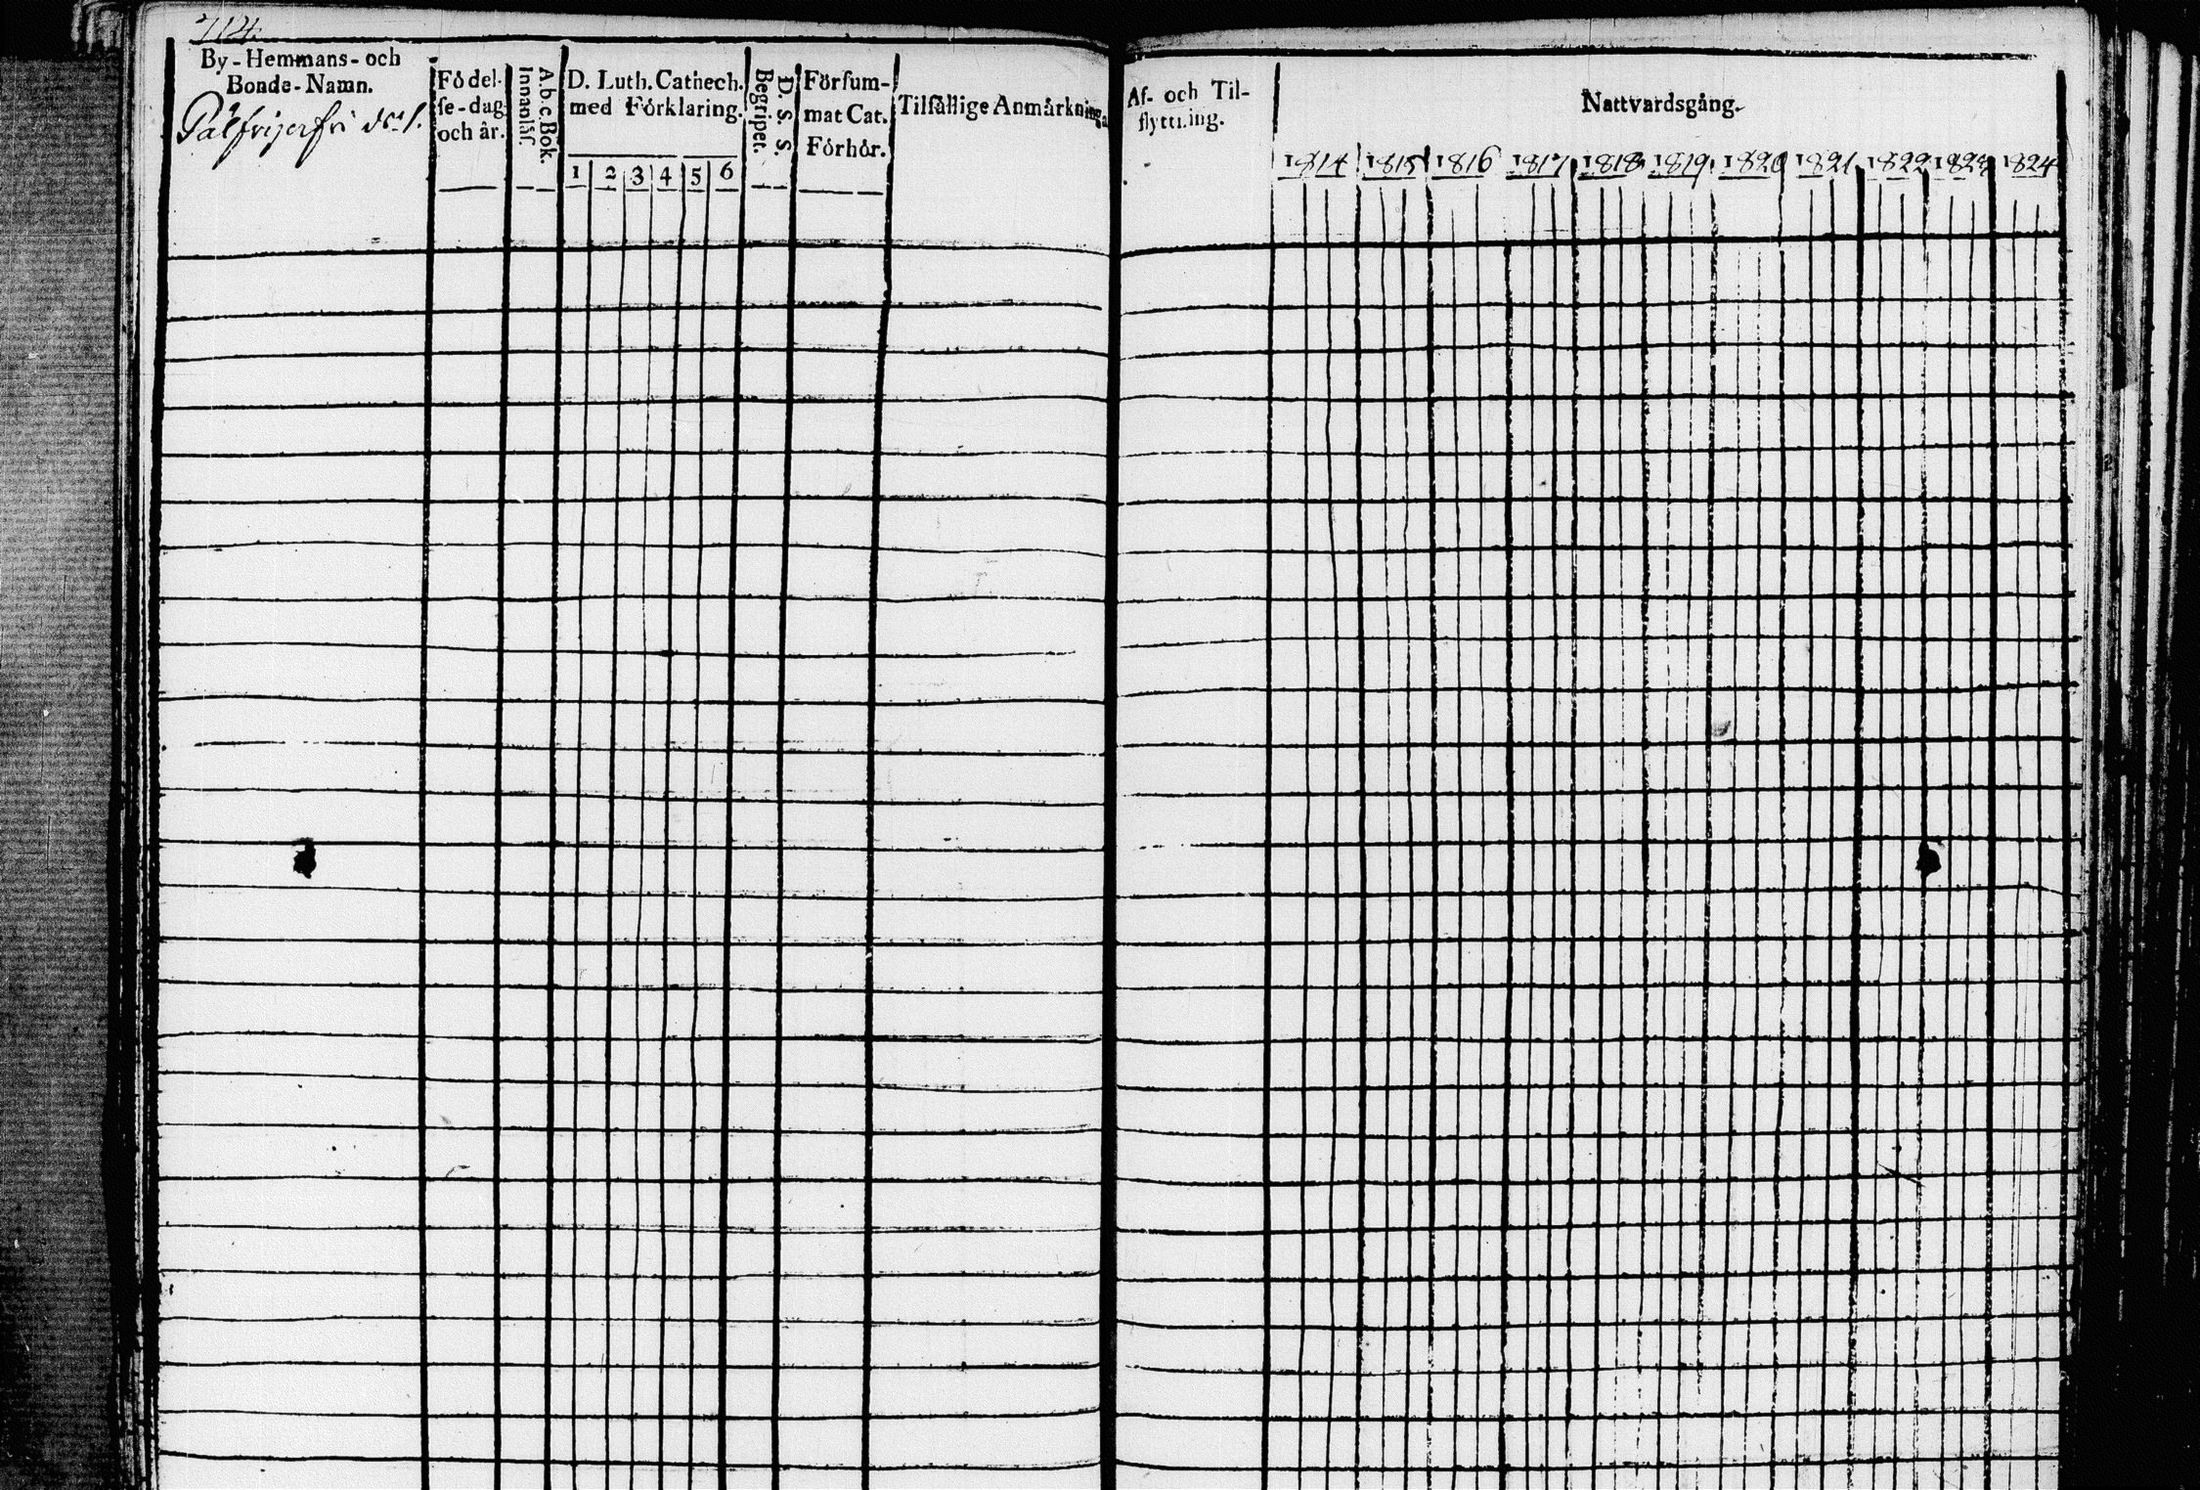 714.
By-Hemmans- och
Bonde-Namn.
Födel-
se-dag
och år.
A.b.c.Bok.
Innanläs.
D. Luth. Cathech.
med Förklaring.
1 2 3 4 5 6
D. S. S.
Begripet.
Försum-
mat Cat.
Förhör.
Tilfällige Anmärkninga
Af- och Til-
flyttning.
Nattvardsgång.
1814 1815 1816 1817 1818 1819 1820 1821 1822 1823 1824